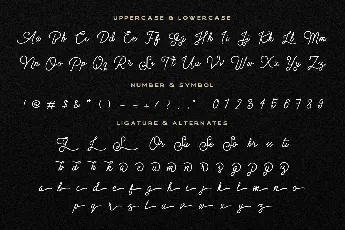 UPPERCASE & LOWERCASE
Aa Bb Cc Dd Ee Ff Gg Hh Ii Jj Kk Ll Mm
Nn Oo Pp Qq Rr Ss Tt Uu Vv Ww Xx Yy Zz
NUMBER & SYMBOL
! @ # $ & * ( )
0 1 2 3 4 5 6 7 8 9
LIGATURE & ALTERNATES
Or Sa Se So br
a b c d e f g h i j k l m n o
p q r s t u v w x y z